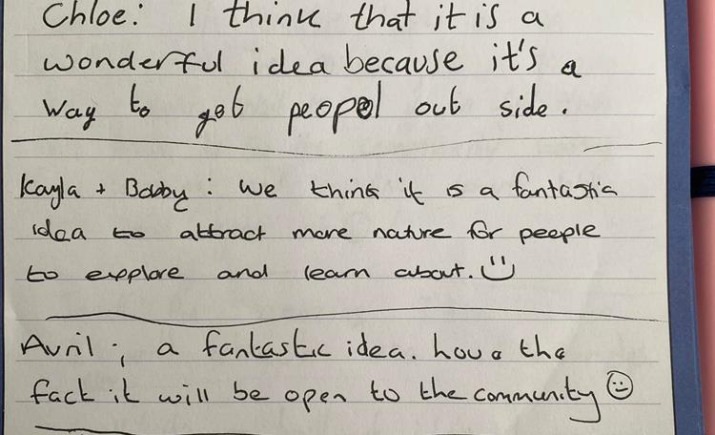 Chloe: I think that it is a
wonderful idea because it's a
way to get peopel out side.
Kayla + Bobby: We think it is a fantastic
idea to attract more nature for people
to explore and learn about. :)
Avril: a fantastic idea. love the
fact it will be open to the community ☺